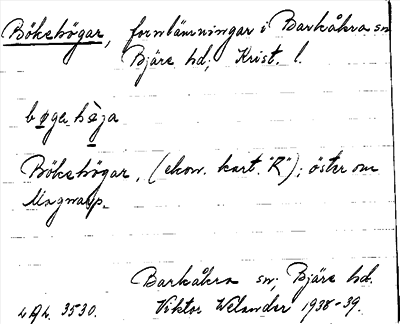 Bökehögar, fornlämningar i Barkåkra sn
Bjäre hd; Krist. l.
bøge høja
Bökehögar, (ekon. kart. "R"); öster om
Margretetorp.
Barkåkra sn; Bjäre hd.
3530. Viktor Welander 1938-39.